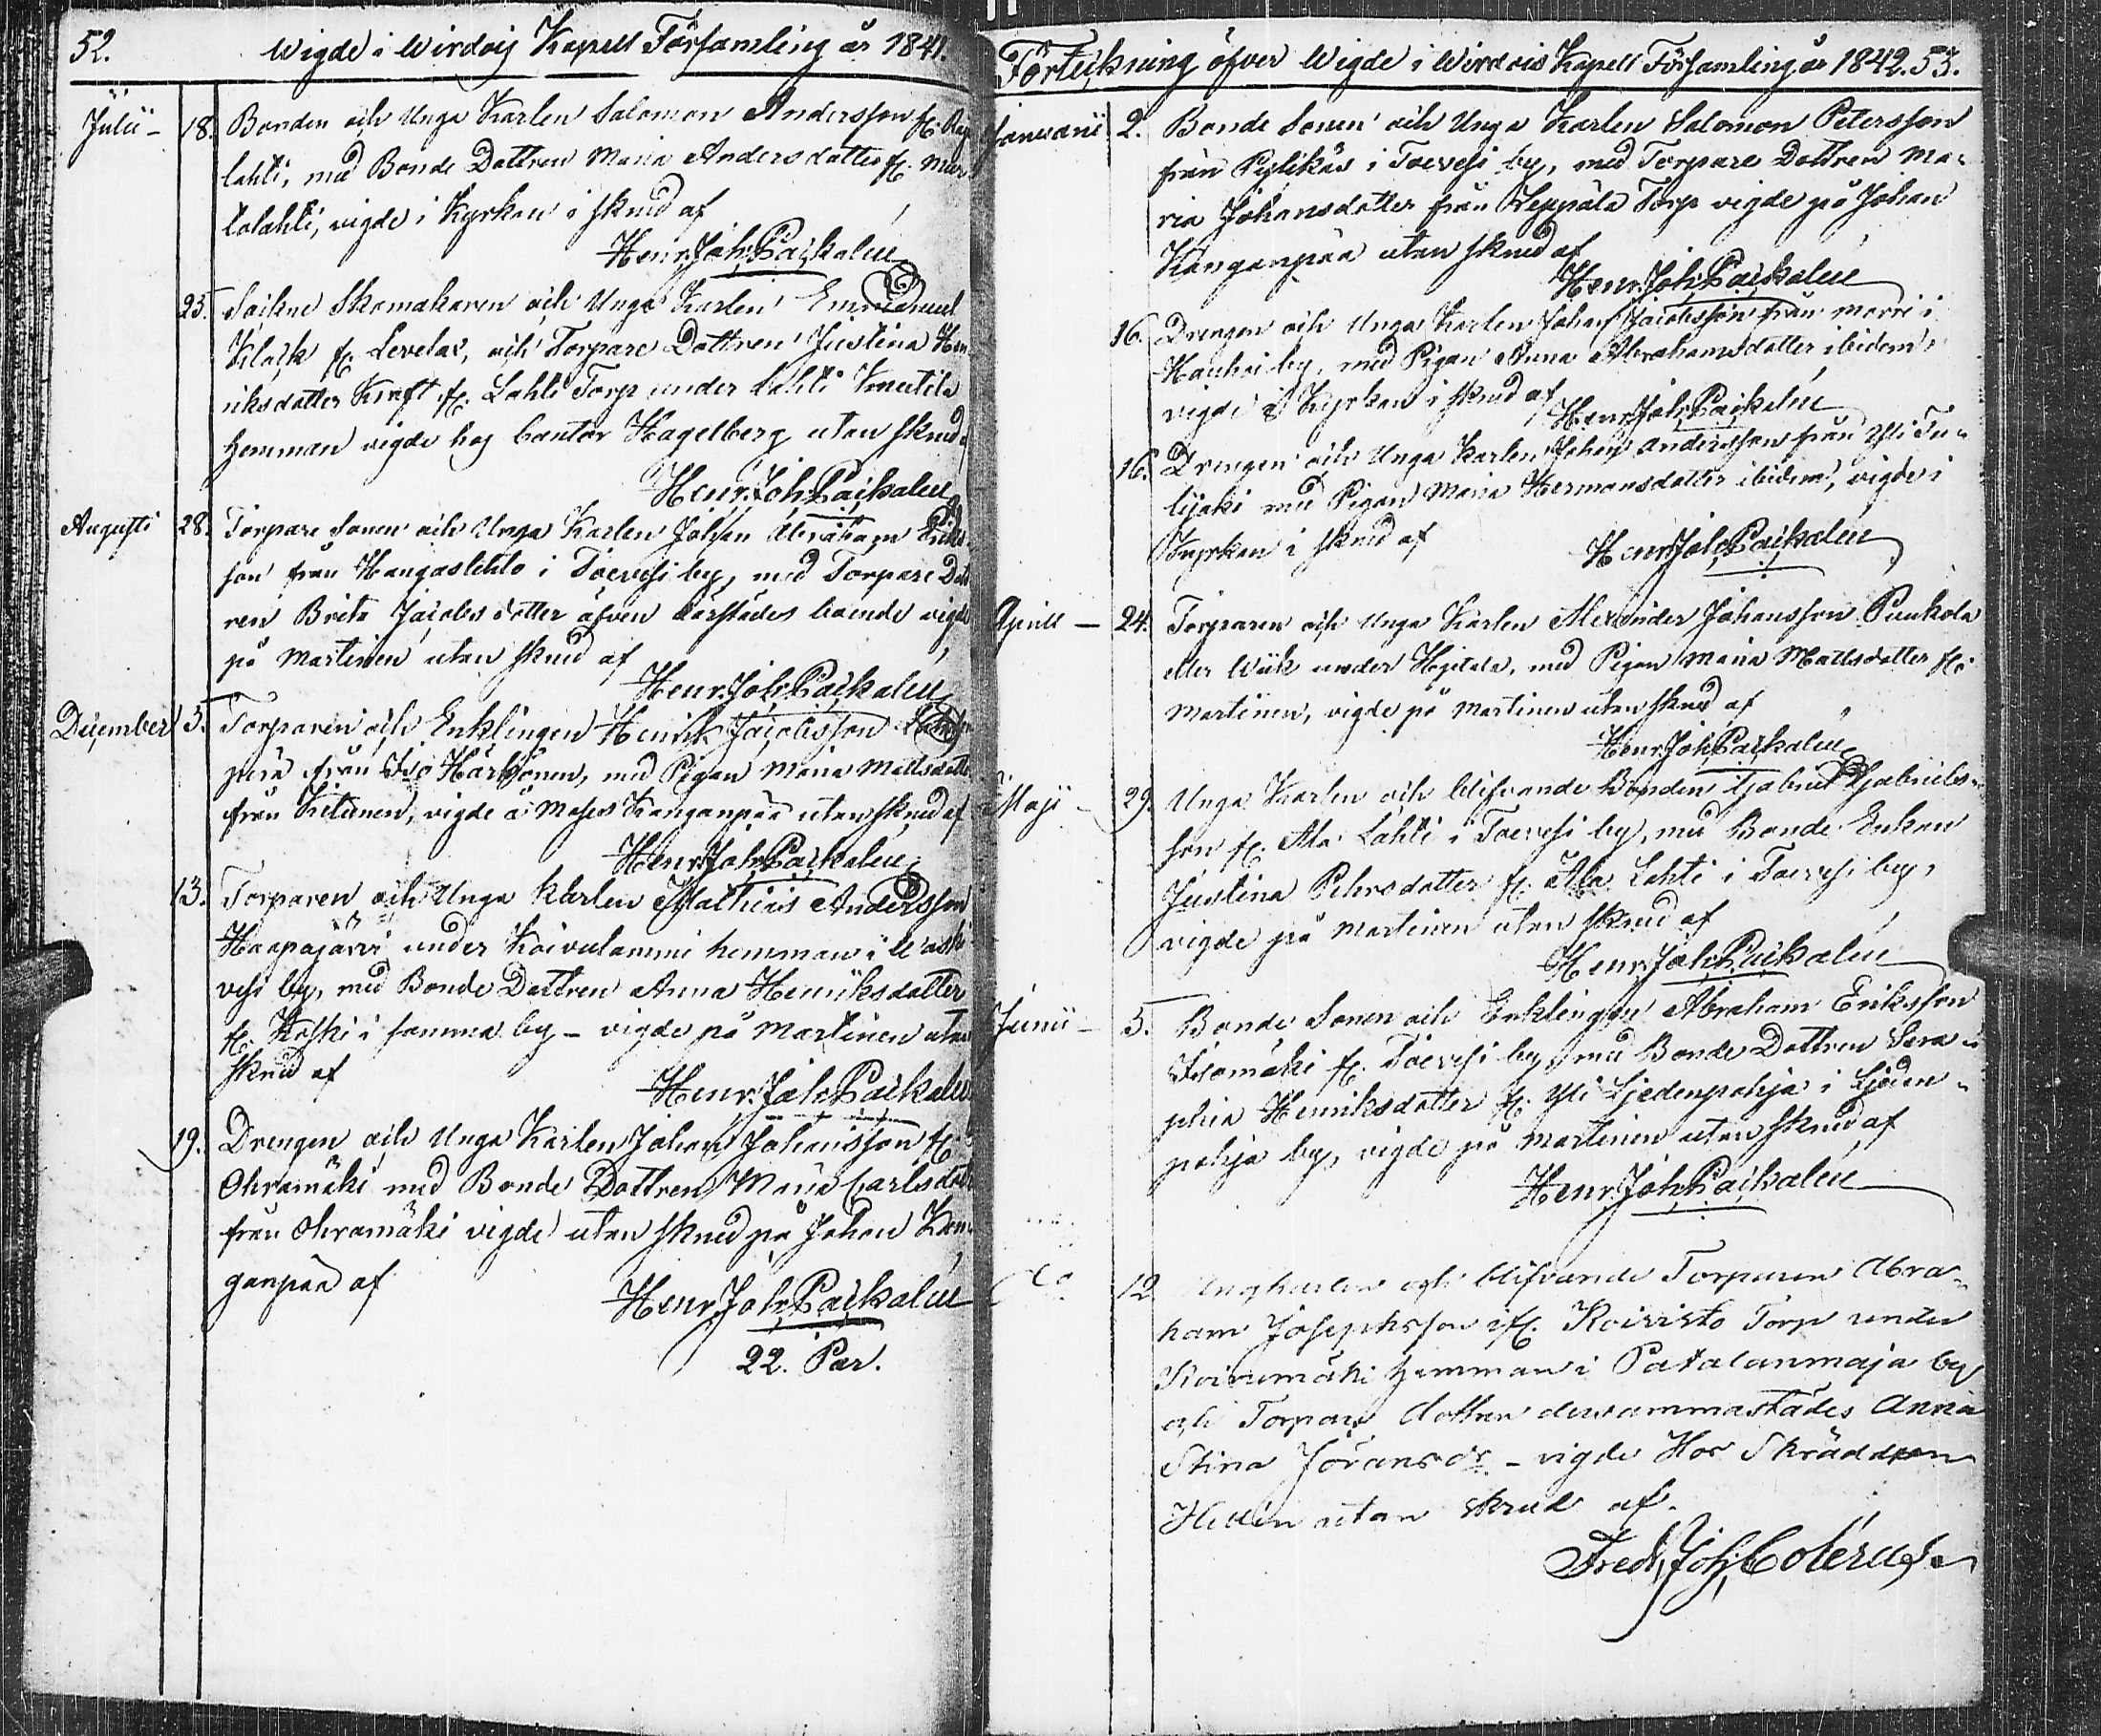 52. Wigde i Wirdois Kapell Församling år 1841.
Julii – 18. Bonden och Unga Karlen Salomon Andersson fr.
lahti, med Bonde Dottren Maria Andersdotter fr. Mar
talahti, vigde i Kyrkan i skrud af
Henr. Joh. Paiskalén
25. Sockne Skomakaren och Unga Karlen Emanuel
Klock fr. Levelax, och Torpare Dottren Justina Hen
riksdotter Kraft fr. Lahti Torp under Lahti Knuutila
hemman vigde hos Cantor Hagelberg utan skrud af
Henr. Joh. Paiskalén
Augusti 28. Torpare Sonen och Unga Karlen Johan Abraham Eriks
son från Kangaslehto i Toevesi by, med Torpare Dott
ren Brita Jacobsdotter äfven därstädes boende vigde
på Martinen utan skrud af
Henr. Joh. Paiskalén
December 5. Torparen och Enklingen Henrik Jacobsson
perä från Iso Härkönen, med Pigan Maria Mattsdotter
från Kitunen, vigde å Moses Kanganpää utan skrud af
Henr. Joh. Paiskalén
13. Torparen och Unga Karlen Mathias Andersson
Haapajärvi under Koivulammi hemman i Waski
vesi by, med Bonde Dottren Anna Henriksdotter
fr. Koski i samma by – vigde på Martinen utan
skrud af
Henr. Joh. Paiskalén
19. Drengen och Unga Karlen Johan Johansson fr.
Ohramäki med Bonde Dottren Maria Carlsdotter
från Ohramäki vigde utan skrud på Johan Kan
ganpää af
Henr. Joh. Paiskalén
22. Par.
Förteckning öfver Wigde i Wirdois Kapell Församling år 1842. 53.
Januarii 2. Bonde Sonen och Unga Karlen Salomon Petersson
från Pihlikäs i Toevesi by, med Torpare Dottren Ma-
ria Johansdotter från Seppälä Torp vigde på Johan
Kanganpää utan skrud af
Henr. Joh. Paiskalén
16. Drengen och Unga Karlen Johan Jacobsson från Morri i
Hauhoi by, med Pigan Anna Abrahamsdotter ibidem,
vigde i Kyrkan i skrud af
Henr. Joh. Paiskalén
16. Drengen och Unga Karlen Johan Andersson från Yli Tu-
lijoki med Pigan Maria Hermansdotter ibidem, vigde i
Kyrkan i skrud af
Henr. Joh. Paiskalén
Aprill – 24. Torparen och Unga Karlen Alexander Johansson Puukola
eller Wiik under Hejtala, med Pigan Maria Mattsdotter fr.
Martinen, vigde på Martinen utan skrud af
Henr. Joh. Paiskalén
Maji – 29. Unga Karlen och blifvande Bonden Gabriel Gabriels-
son fr. Ala Lahti i Toevesi by, med Bonde Enkan
Justina Pehrsdotter fr. Ala Lahti i Toevesi by,
vigde på Martinen utan skrud af
Henr. Joh. Paiskalén
Junii – 5. Bonde Sonen och Enklingen Abraham Eriksson
Isomäki fr. Toevesi by, med Bonde Dottren Sera-
phia Henriksdotter fr. Yli Liedenpohja i Lieden-
pohja by, vigde på Martinen utan skrud af
Henr. Joh. Paiskalén
do 12 Ungkarlen och blifvande Torparen Abra-
ham Josephsson fr. Koivisto Torp under
Koivumäki Hemman i Patalanmaja by
och Torpare dottren dersammastädes Anna
Stina Göransdr. – vigde Hos Skräddren
Hedin utan skrud af.
Fredr. Joh. Colérus.